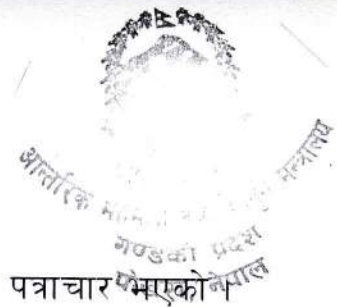 आन्तरिक मामिला तथा कानून मन्त्रालय
गण्डकी प्रदेश
पोखरा, नेपाल
पत्राचार भएको ।